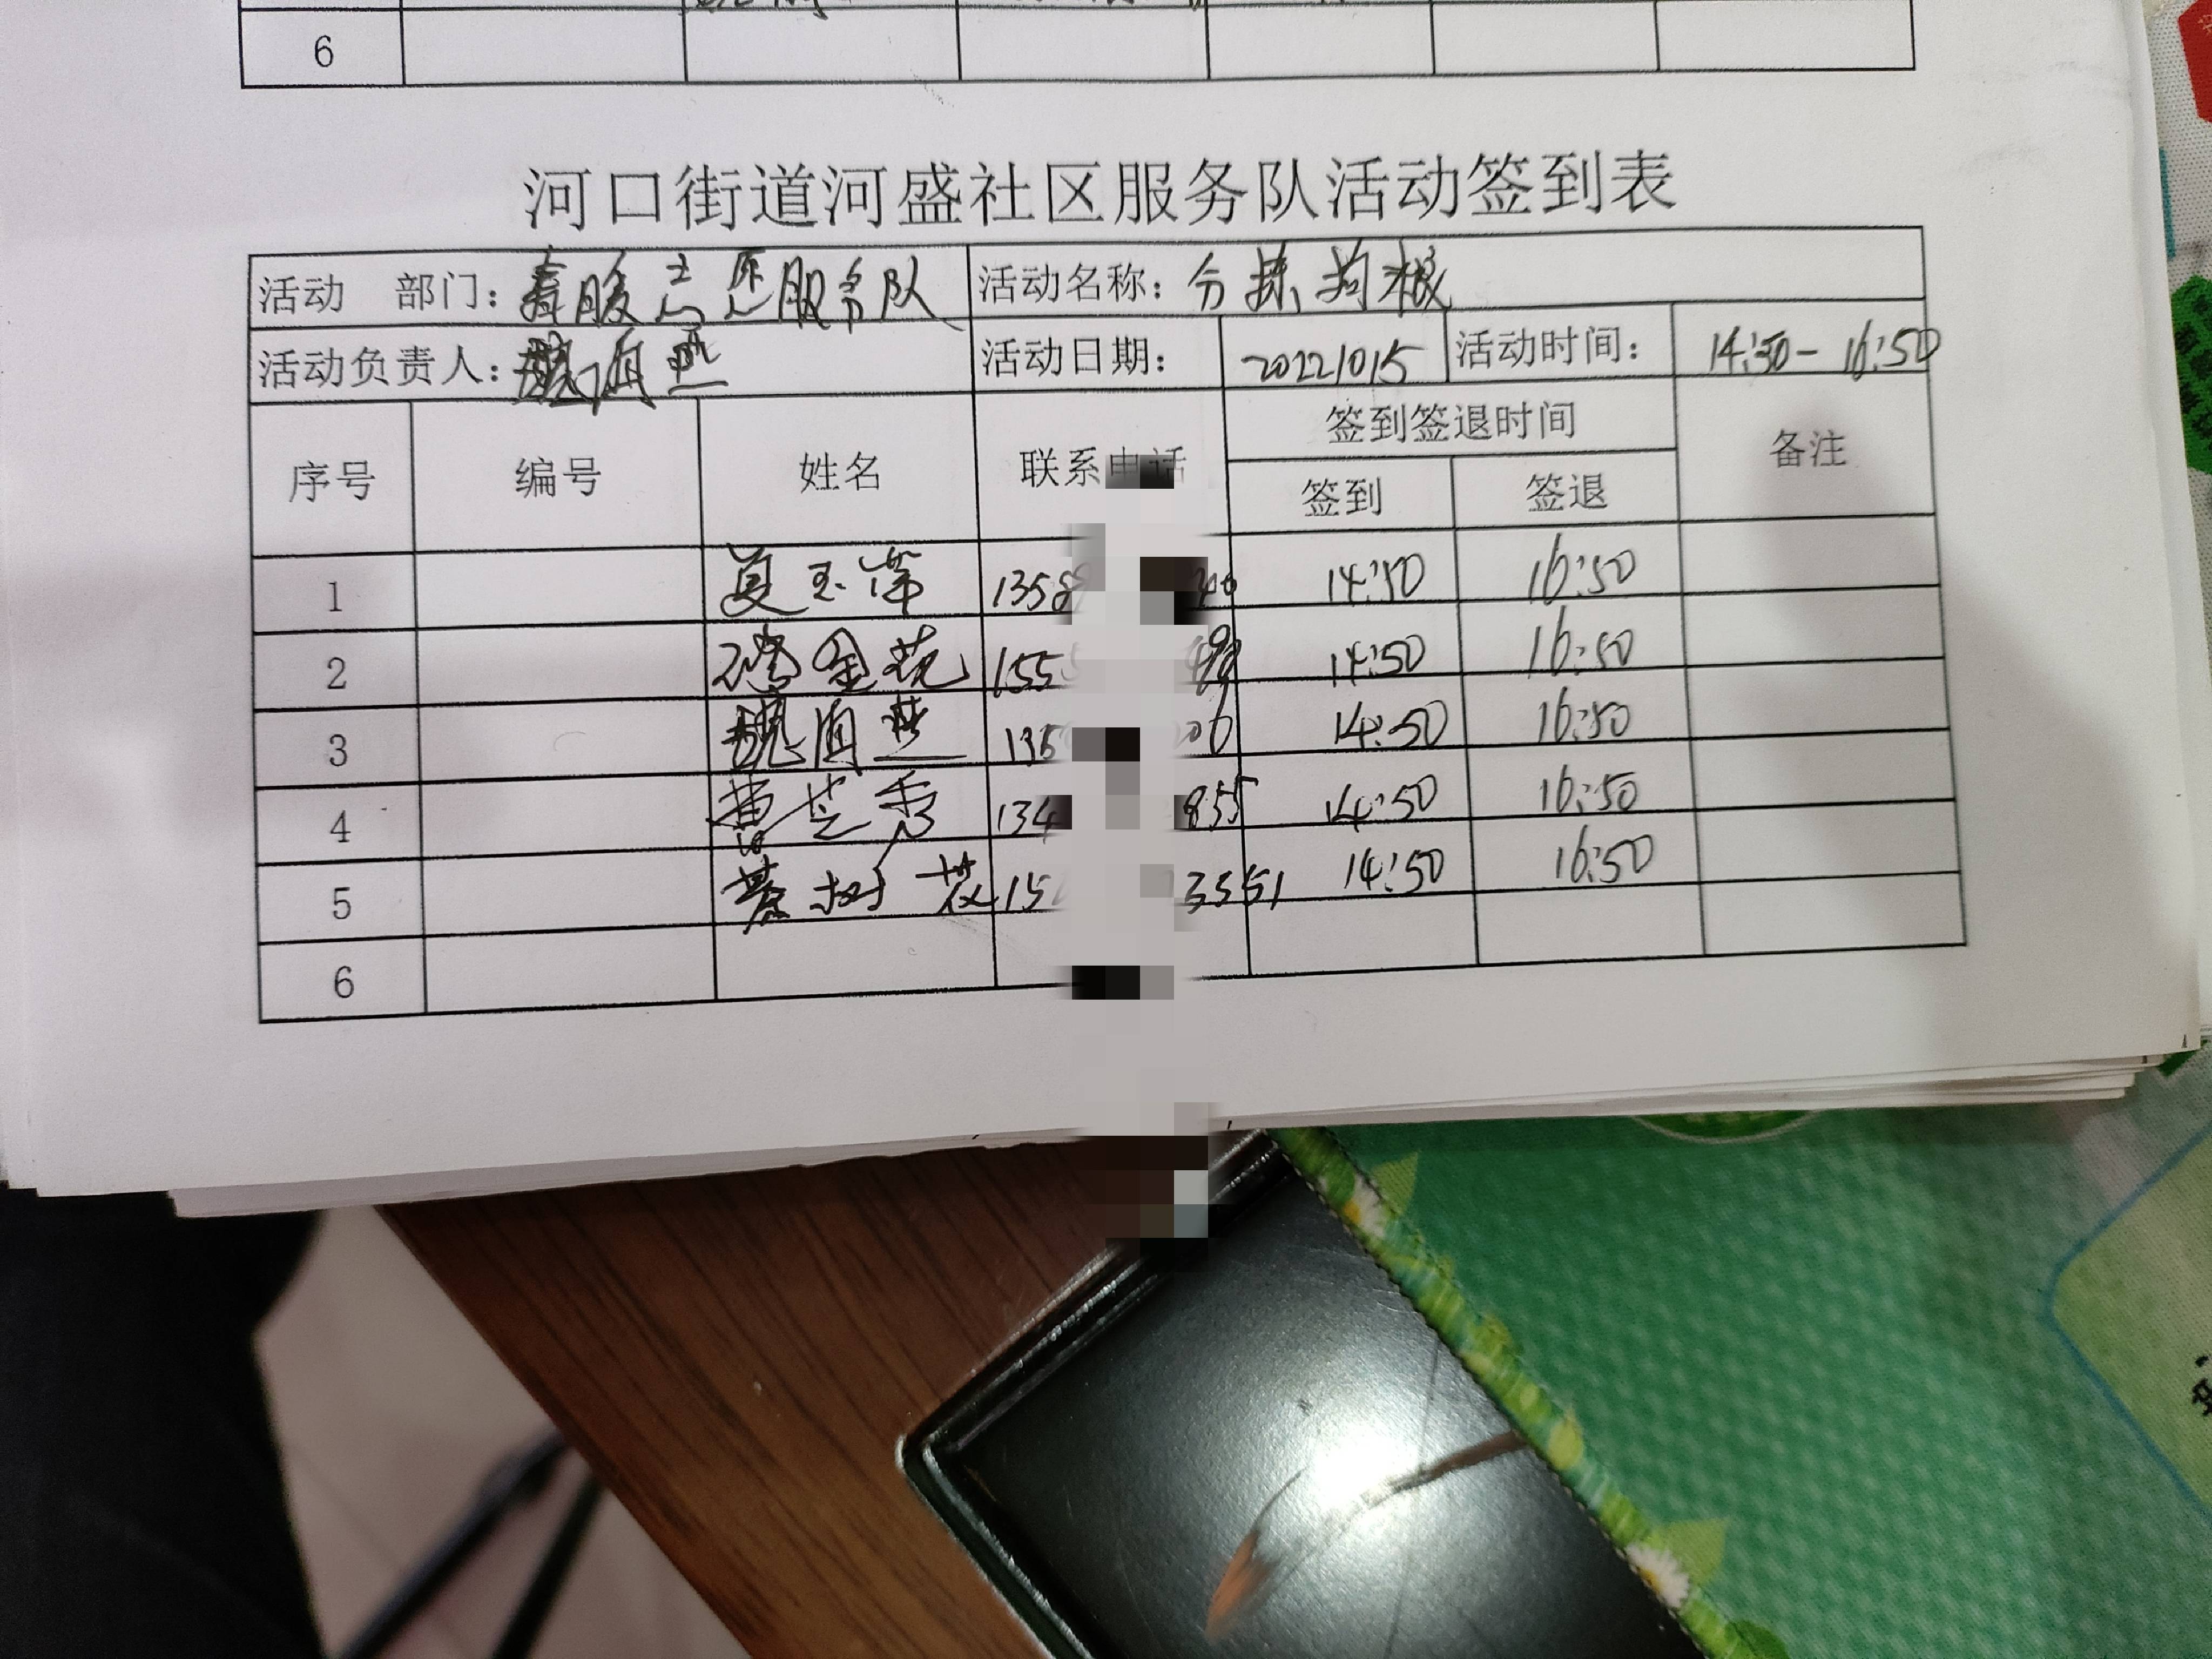 6
河口街道河盛社区服务队活动签到表
活动 部门：春暖志愿服务队 活动名称：分拣药根
活动负责人： 活动日期： 20221015 活动时间： 14:50-16:50
序号 编号 姓名 联系电话 签到签退时间 备注
签到 签退
1 夏玉萍 1358 40 14:50 16:50
2 金花 155 14:50 16:50
3 06 14:50 16:50
4 芝秀 134 855 14:50 16:50
5 綦树花 15 3551 14:50 16:50
6